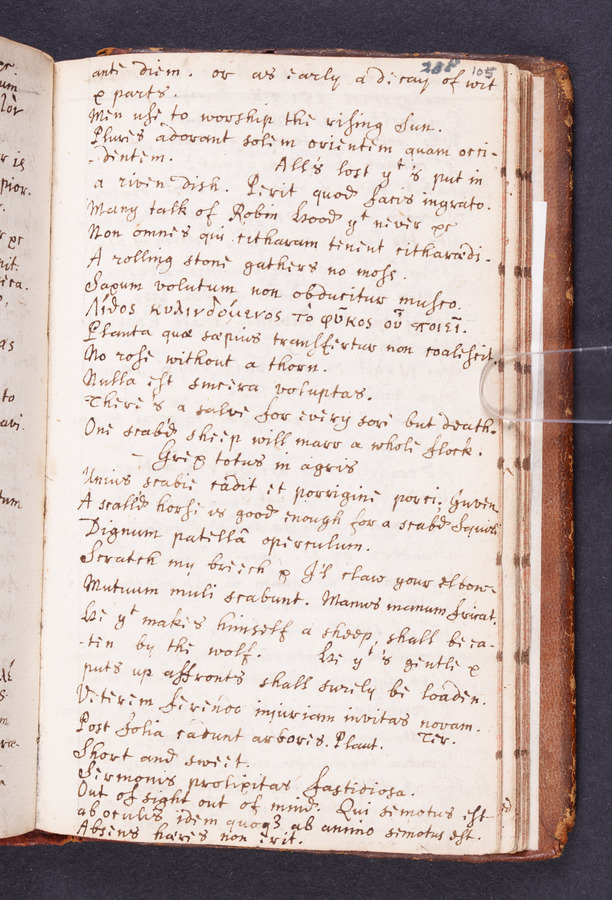 285 105
ante diem. or as early a decay of wit
& parts.
Men use to worship the rising Sun.
Plures adorant solem orientem quam occi-
-dentem. All's lost yt's put in
a riven dish. Perit quod facis ingrato.
Many talk of Robin Hood yt never &c
Non omnes qui citharam tenent citharædi.
A rolling stone gathers no moss.
Saxum volutum non obducitur musco.
Λίθος κυλινδόμενος τὸ φῦκος οὐ ποιεῖ.
Planta quæ sæpius transfertur non coalescit.
No rose without a thorn.
Nulla est sincera voluptas.
There's a salve for every sore but death.
One scabd sheep will marr a whole flock.
- Grex totus in agris
Unius scabie cadit et porrigine porci; Juven.
A scalld horse is good enough for a scabd squire
Dignum patellâ operculum.
Scratch my breech & I'l claw your elbow.
Mutuum muli scabunt. Manus manum fricat.
He yt makes himself a sheep, shall be ea-
-ten by the wolf. He yt's gentle &
puts up affronts shall surely be loaden.
Veterem ferendo injuriam invitas novam.
Post folia cadunt arbores. Plaut. Ter.
Short and sweet.
Sermonis prolixitas fastidiosa.
Out of sight out of mind. Qui semotus est
ab oculis, idem quoq3 ab animo semotus est.
Absens hæres non erit.